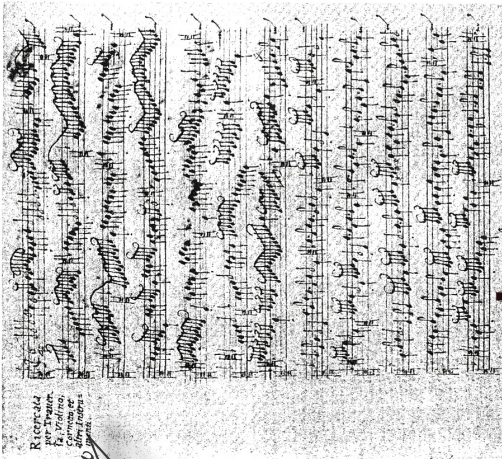 Ricercata
per Traver.
sa, Violino,
Cornetto et
altri Instrus
menti.